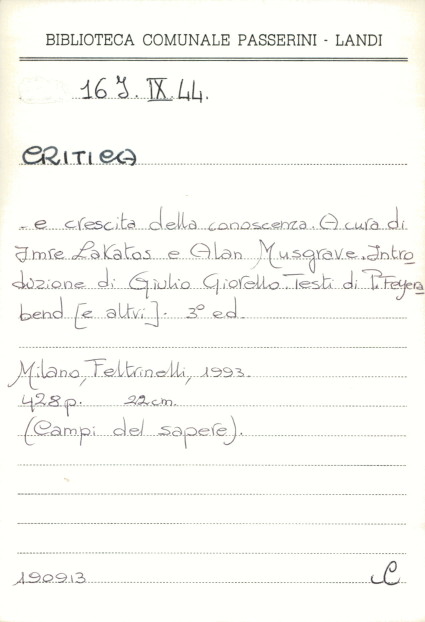 BIBLIOTECA COMUNALE PASSERINI - LANDI
16 J. IX. 44.
CRITICA
- e crescita della conoscenza. A cura di
Imre Lakatos e Alan Musgrave. Intro
duzione di Giulio Giorello. Testi di P. Feyera
bend [e altri]. 3° ed.
Milano, Feltrinelli, 1993.
428 p. 22 cm.
(Campi del sapere).
190913
C